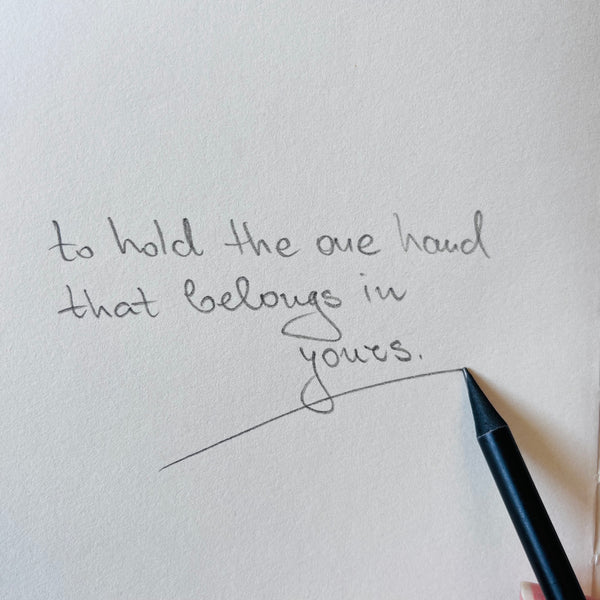 to hold the one hand
that belongs in
yours.